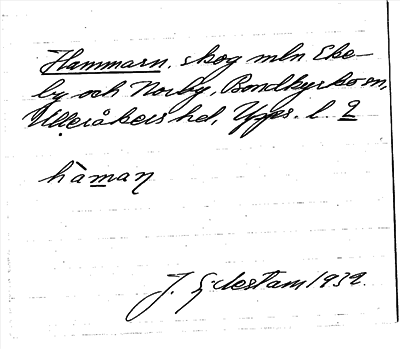 Hammarn, skog mln Eke-
by och Norby, Bondkyrko sn,
Ulleråkers hd, Upps. l.
hàman
J. 1932.